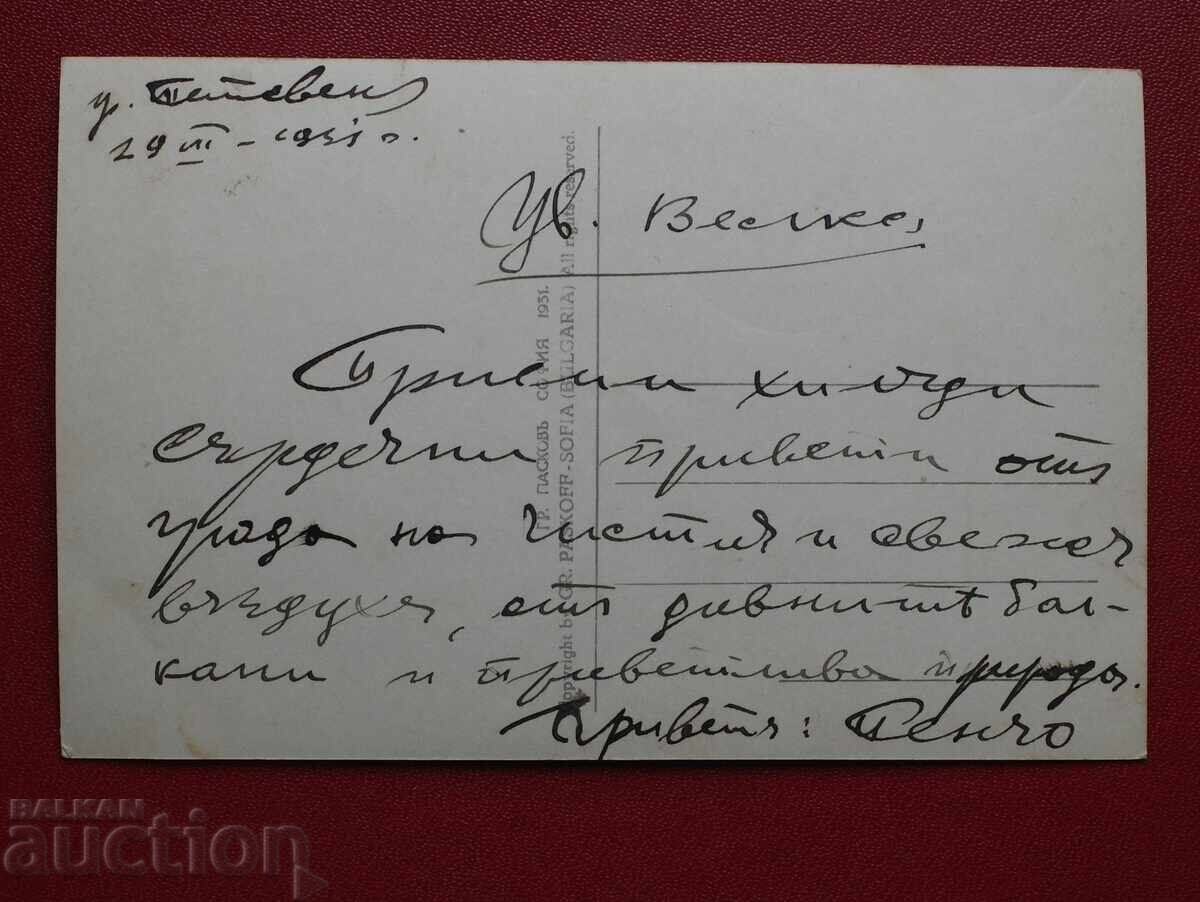 гр. Тетевенъ
29 VII - 1931 г.
Ув. Велке,
Приеми хиляди
сърдечни привети отъ
града на чистия и свежъ
въздухъ, отъ дивнитѣ бал-
кани и приветлива природа.
Приветъ: Пенчо
ГР. ПАСКОВЪ СОФИЯ 1931.
Copyright by GR. PASKOFF-SOFIA (BULGARIA) All rights reserved.
BALKAN
auction